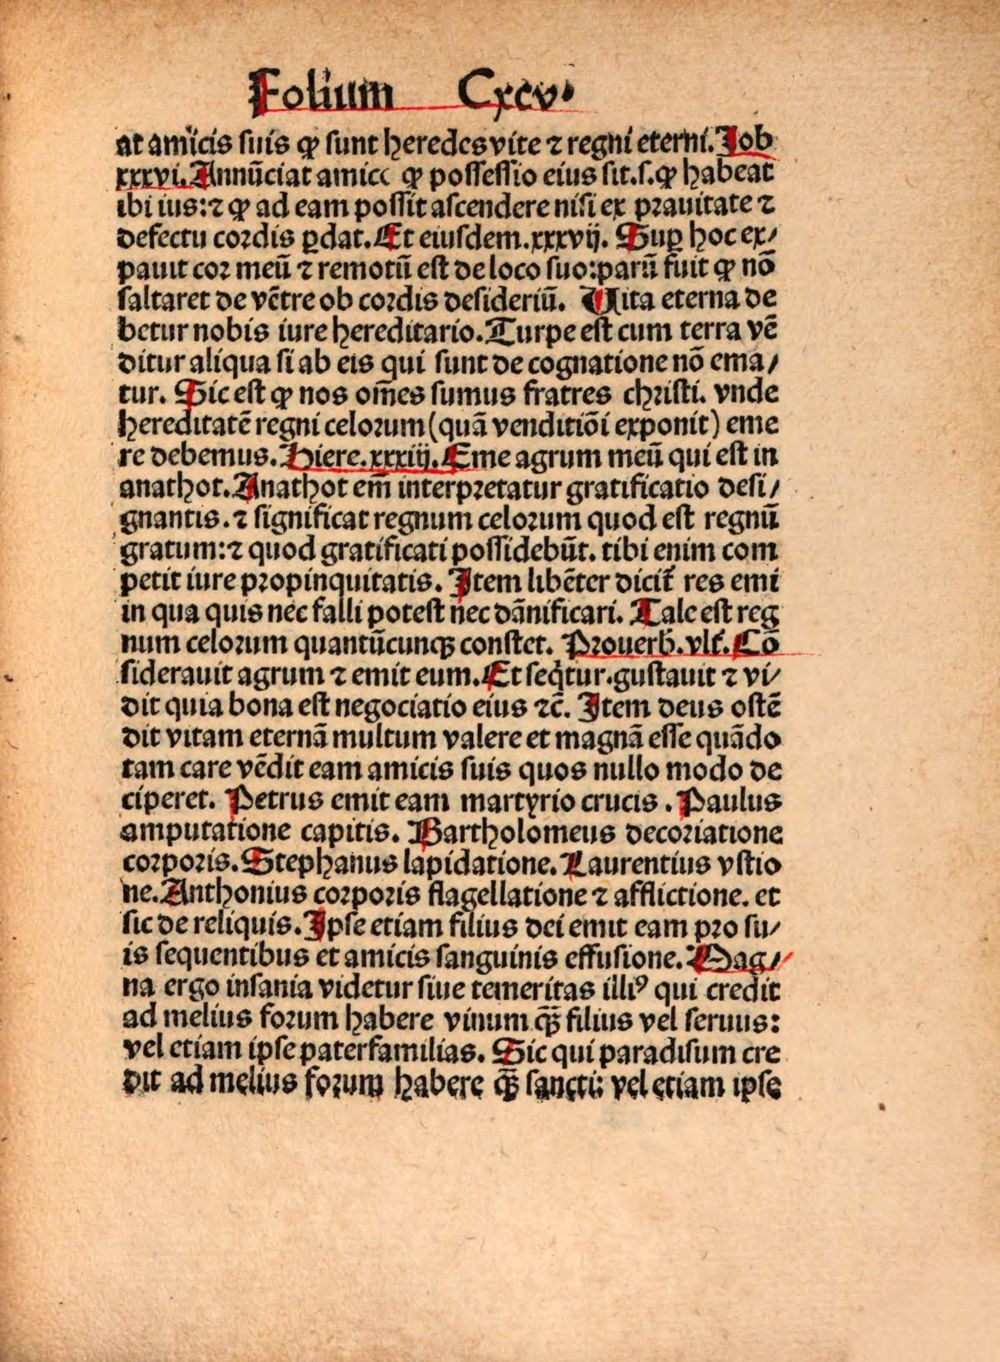 Folium Cxcv.
at amicis suis ꝙ sunt heredes vite ⁊ regni eterni. Job
xxxvi. Annũciat amico ꝙ possessio eius sit. s. ꝙ habeat
ibi ius: ⁊ ꝙ ad eam possit ascendere nisi ex prauitate ⁊
defectu cordis ꝑdat. Et eiusdem. xxxvij. Suꝑ hoc ex/
pauit cor meũ ⁊ remotũ est de loco suo: parũ fuit ꝙ nõ
saltaret de vẽtre ob cordis desideriũ. Uita eterna de
betur nobis iure hereditario. Turpe est cum terra vẽ
ditur aliqua si ab eis qui sunt de cognatione nõ ema/
tur. Sic est ꝙ nos om̃es sumus fratres christi. vnde
hereditatẽ regni celorum (quã venditiõi exponit) eme
re debemus. Hiere. xxxiij. Eme agrum meũ qui est in
anathot. Anathot em̃ interpretatur gratificatio desi/
gnantis. ⁊ significat regnum celorum quod est regnũ
gratum: ⁊ quod gratificati possidebũt. tibi enim com
petit iure propinquitatis. Item libẽter dicit̃ res emi
in qua quis nec falli potest nec dãnificari. Tale est reg
num celorum quantũcunqꝫ constet. Prouerb̃. vlt̃. Cõ
siderauit agrum ⁊ emit eum. Et seq̃tur. gustauit ⁊ vi/
dit quia bona est negociatio eius ⁊c̃. Item deus ostẽ
dit vitam eternã multum valere et magnã esse quãdo
tam care vẽdit eam amicis suis quos nullo modo de
ciperet. Petrus emit eam martyrio crucis. Paulus
amputatione capitis. Bartholomeus decoriatione
corporis. Stephanus lapidatione. Laurentius vstio
ne. Anthonius corporis flagellatione ⁊ afflictione. et
sic de reliquis. Ipse etiam filius dei emit eam pro su/
is sequentibus et amicis sanguinis effusione. Mag/
na ergo insania videtur siue temeritas illiꝰ qui credit
ad melius forum habere vinum qꝫ̃ filius vel seruus:
vel etiam ipse paterfamilias. Sic qui paradisum cre
dit ad melius forum habere qꝫ̃ sancti: vel etiam ipse